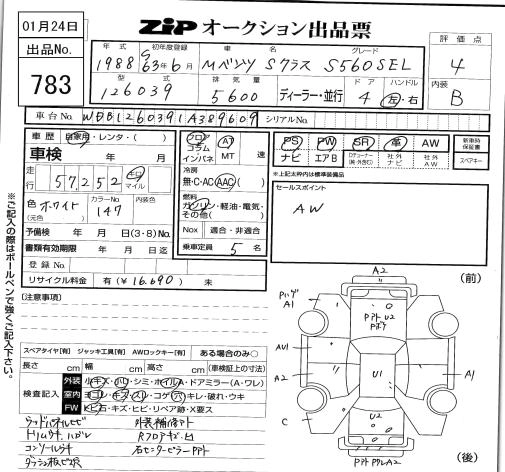 01月24日
ZIP オークション出品票
出品No.
783
年式 初年度登録 車名 グレード
1988 S63年6月 Mベンツ Sクラス S560SEL
型式 排気量 ドア ハンドル
126039 5600 ディーラー・並行 4 左・右
評価点
4
内装
B
車台No. WDB1260391A389609 シリアルNo.
車歴 自家用・レンタ・( )
車検 年 月
走行 57,252 キロ マイル
色 ホワイト カラーNo. 147 内装色
(元色)
予備検 年 月 日(3・8)No.
書類有効期限 年 月 日迄
登録No.
リサイクル料金 有(¥16,690) 未
フロア AT
コラム
インパネ MT 速
冷房
無・C・AC AAC
燃料
ガソリン・軽油・電気・
その他( )
Nox 適合・非適合
乗車定員 5 名
PS PW SR 革 AW 新車時保証書
ナビ エアB 社外ナビ 社外AW スペアキー
※上記太枠内は標準装備品
セールスポイント
AW
(注意事項)
スペアタイヤ[有] ジャッキ工具[有] AWロックキー[有] ある場合のみ○
長さ cm 幅 cm 高さ cm (車検証上の寸法)
検査記入
外装 キズ・凹・シミ・ホイルA・ドアミラー(A・ワレ)
室内 ヨゴレ・キズ・スレ・コゲ穴・キレ・破れ・ウキ
FW トビ石・キズ・ヒビ・リペア跡・X要ス
ウッドパネルヒビ 外装補修アト
コンソールキズ
※ご記入の際はボールペンで強くご記入下さい。
(前)
A2
A1
U2
AU1
A2
U1
A1
C
U2
A2
(後)